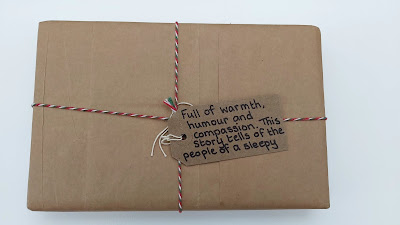 Full of warmth,
humour and
compassion. This
story tells of the
people of a sleepy